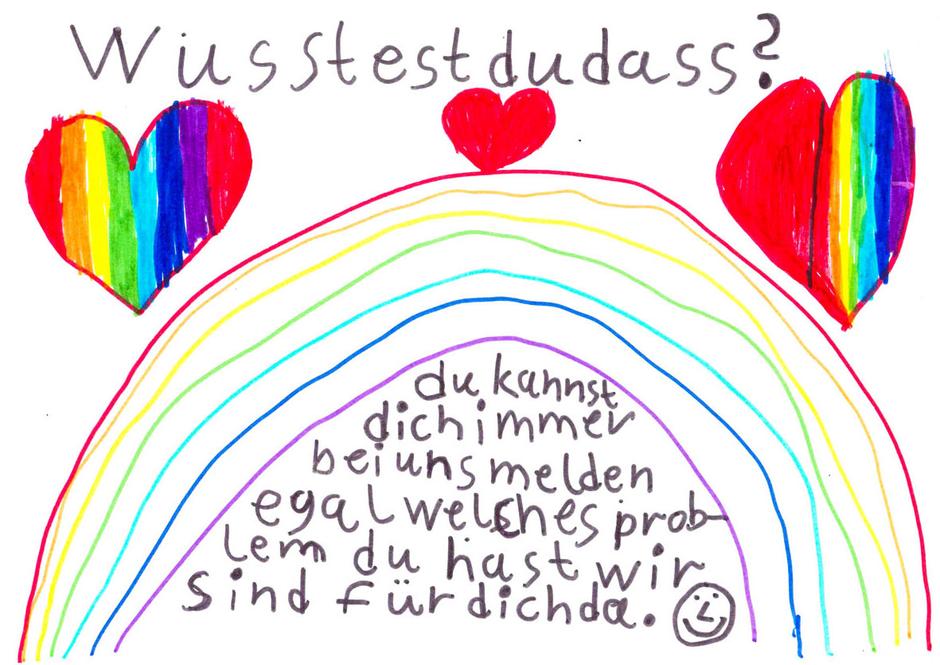 Wusstest du dass?
du kannst
dich immer
bei uns melden
egal welches prob-
lem du hast wir
sind für dich da.